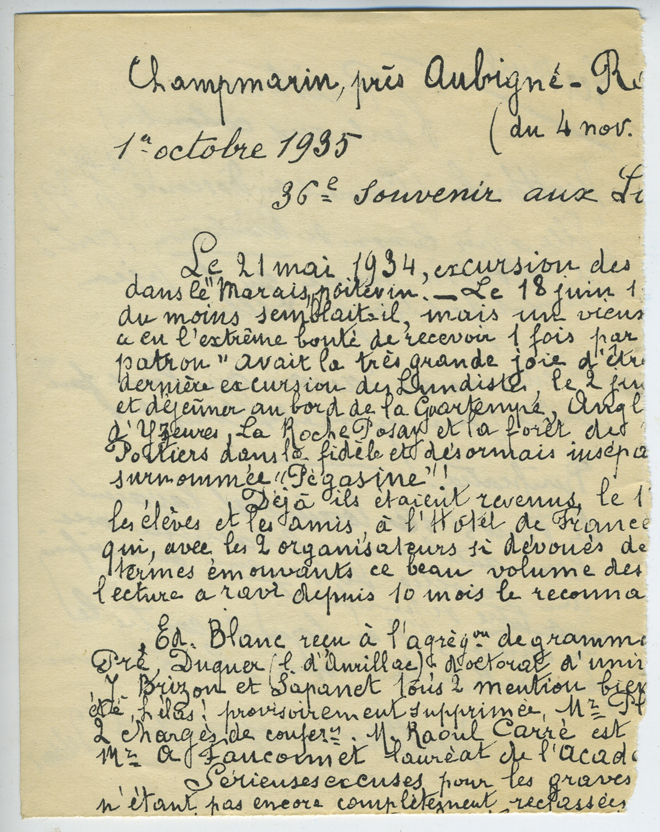 Champmarin, près Aubigné-R
(du 4 nov.
1er octobre 1935
36e souvenir aux
Le 21 mai 1934, excursion des
dans le "Marais poitevin. — Le 18 juin 1
du moins semblait-il, mais un vieux
a eu l'extrême bonté de recevoir 1 fois par
patron" avait la très grande joie d'être
dernière excursion des Lundistes, le 2
et déjeûner au bord de la Gartempe, Angl
d'Yzeures, La Roche Posay et la forêt des
Poitiers dans le fidèle et désormais insépa
surnommée "Pégasine"!
Déjà ils étaient revenus, le 1
les élèves et les amis, à l'Hôtel de France
qui, avec les 2 organisateurs si dévoués de
termes émouvants ce beau volume des
lecture a ravi depuis 10 mois le reconna
Ed. Blanc reçu à l'agrégon de gramma
Pré, Duguer (l. d'Aurillac) doctorat d'univ
Y Brizon et Sapanet tous 2 mention bien
été, hélas! provisoirement supprimée, Mr
2 chargés de confer. M. Raoul Carré est
Mr A Fauconnet lauréat de l'Acad
Sérieuses excuses pour les graves
n'étant pas encore complètement reclassées